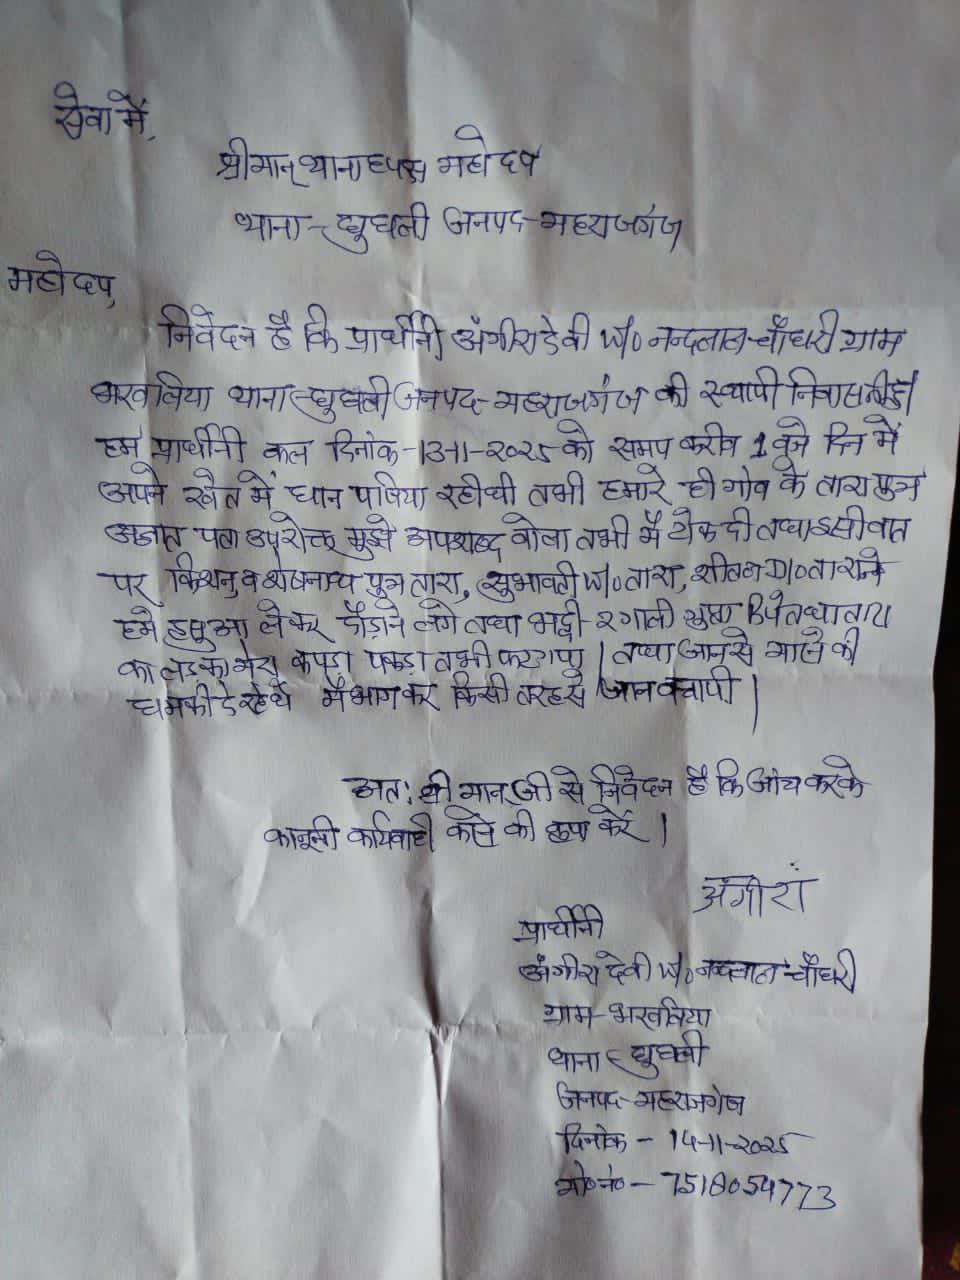 सेवा में,
श्रीमान् थानाध्यक्ष महोदय
थाना - घुघली जनपद - महराजगंज
महोदय,
निवेदन है कि प्रार्थीनी अंगीरा देवी W/o नन्दलाल चौधरी ग्राम
भरवलिया थाना - घुघली जनपद - महराजगंज की स्थायी निवासीनी हूँ।
हम प्रार्थीनी कल दिनांक - 13-11-2025 को समय करीब 1 बजे दिन में
अपने खेत में धान रही थी तभी हमारे ही गांव के तारा पुत्र
अज्ञात पता उपरोक्त मुझे अपशब्द बोला तभी मैं टोक दी तथा इसी बात
पर किशन, व शेषनाथ पुत्र तारा, सुभावती W/o तारा, शीतल D/o तारा ने
हमे हसुआ लेकर दौड़ाने लगे तथा भद्दी - 2 गाली दिये तथा तारा
का लड़का मेरा कपड़ा पकड़ा तभी फट गया। तथा जान से मारने की
धमकी दे रहे थे मैं भाग कर किसी तरह से जान बचायी।
अत: श्री मान् जी से निवेदन है कि जांच करके
कानूनी कार्यवाही करने की कृपा करें।
अंगीरा
प्रार्थीनी
अंगीरा देवी W/o नन्दलाल चौधरी
ग्राम - भरवलिया
थाना - घुघली
जनपद - महराजगंज
दिनांक - 14-11-2025
मो० नं० - 7518054773